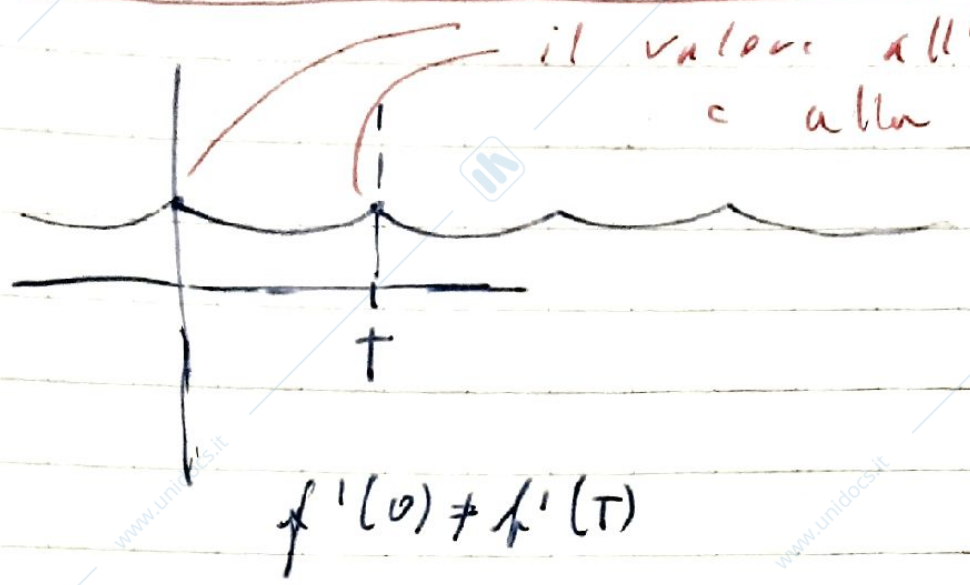 il valore all'
e alla
T
f'(0) ≠ f'(T)
www.unidocs.it
www.unidocs.it